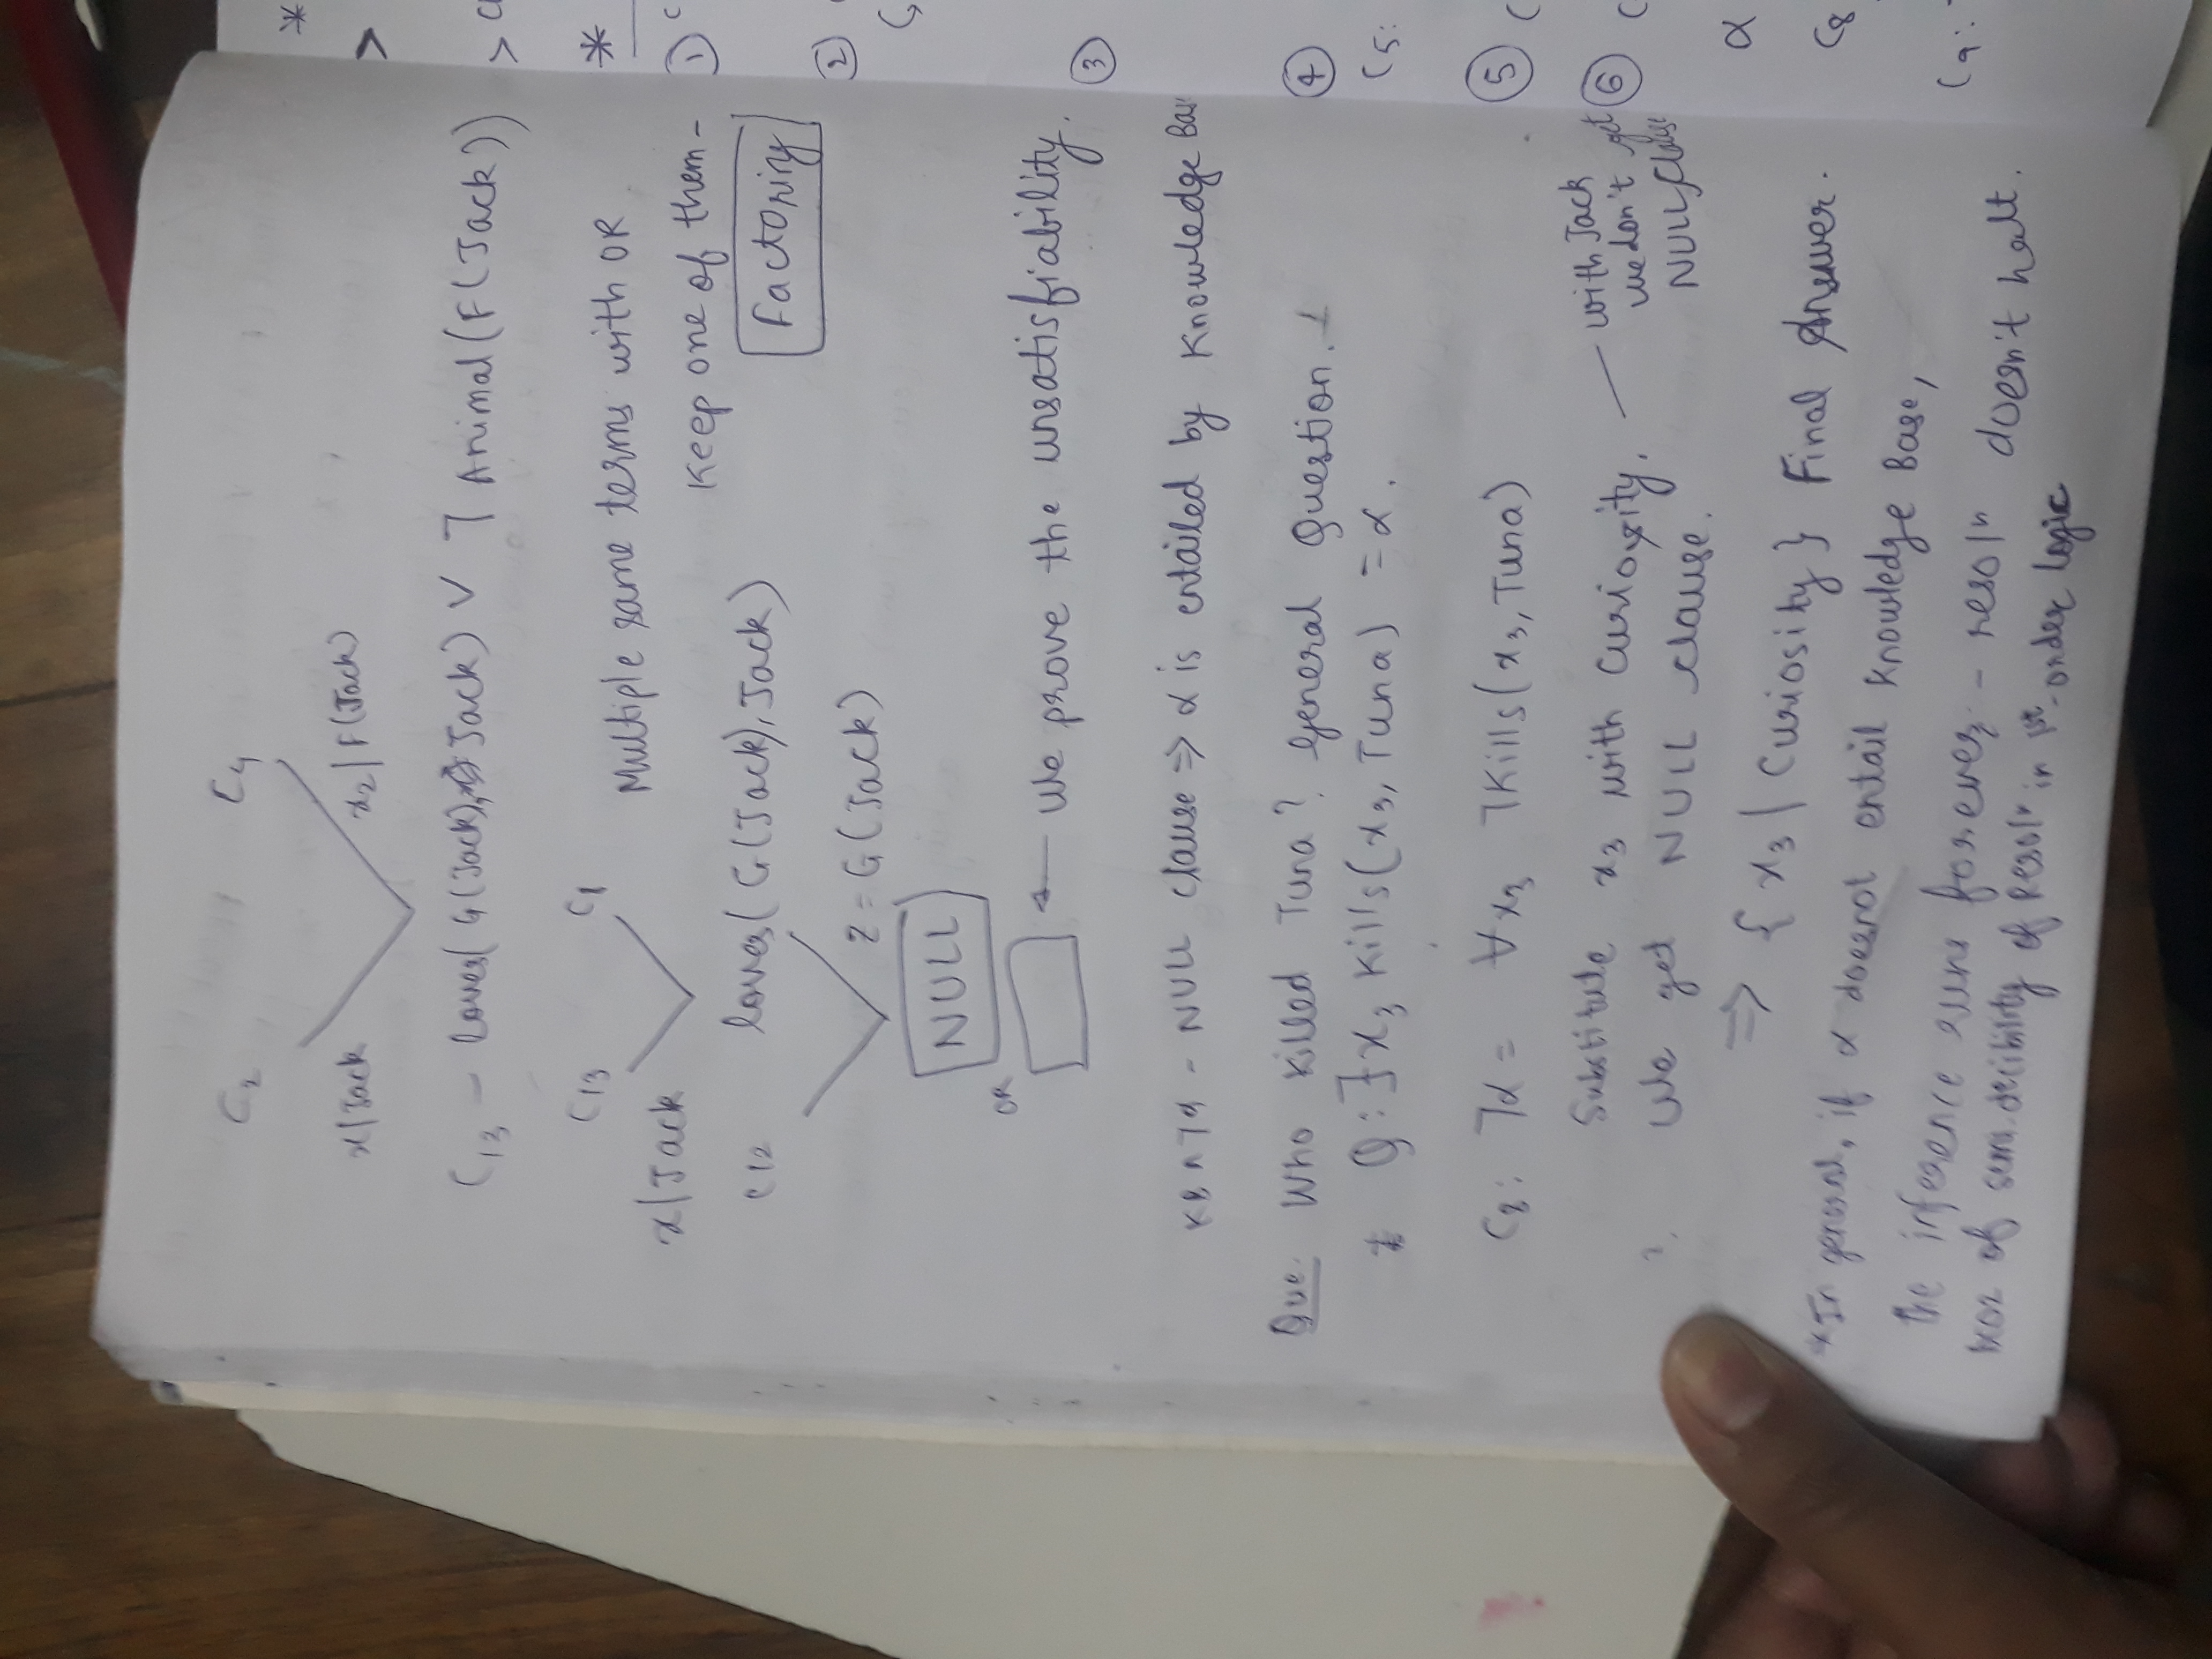 C2 C4
x/Jack x2/F(Jack)
C13 - loves(G(Jack), Jack) ∨ ¬Animal(F(Jack))
C13 C1 Multiple same terms with OR
x/Jack Keep one of them -
C12 loves(G(Jack), Jack) Factoring
z = G(Jack)
NULL
OR
← We prove the unsatisfiability.
KB ∩ ¬α - NULL clause ⇒ α is entailed by Knowledge
Que. Who killed Tuna? General Question.
Q: ∃x3 Kills(x3, Tuna) = α.
C8: ¬α = ∀x3 ¬Kills(x3, Tuna)
Substitute x3 with Curiosity. — with Jack
we don't get
We get NULL clause. NULL clause
⇒ {x3 | Curiosity} Final Answer.
*In general, if α doesnot entail Knowledge Base,
the inference runs forever. - resoln doesn't halt.
of semi-decibility of resoln in 1st-order logic
*
>
> C
*
① C
②
C
③
④
C5:
⑤ C
⑥ C
α
C8
C9: